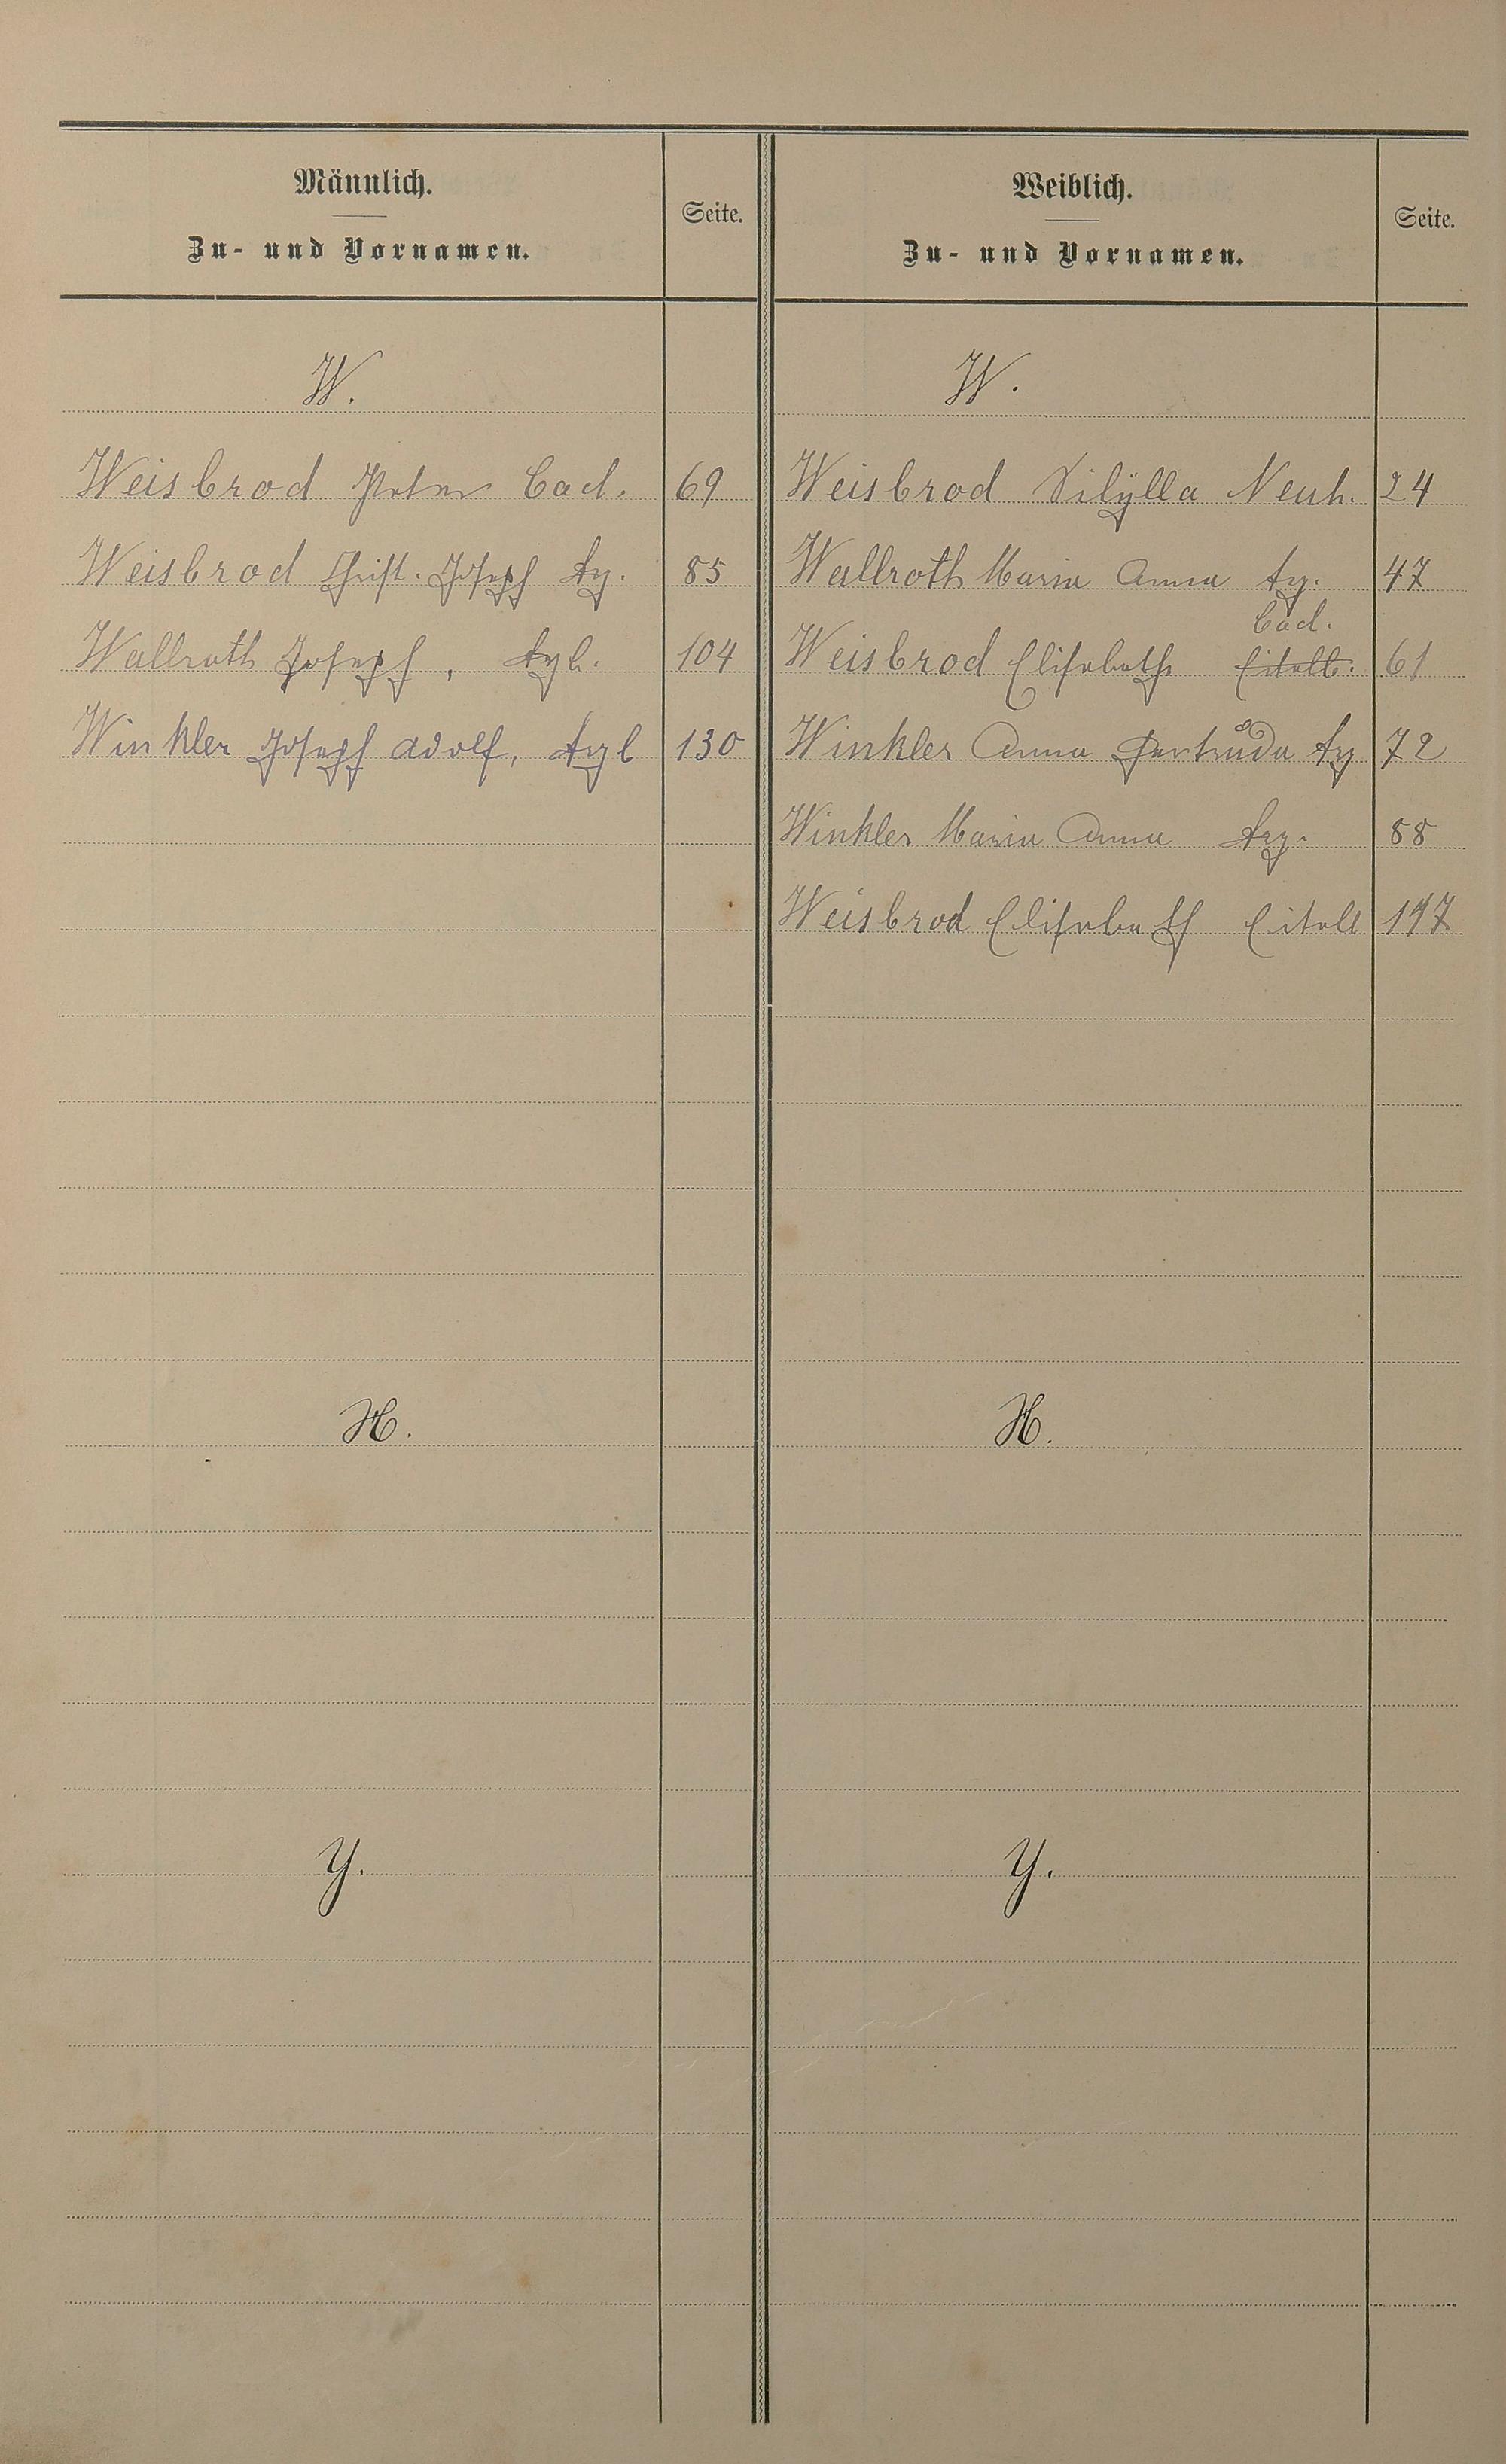 Männlich.
Zu- und Vornamen.
Seite.
W.
Weisbrod Peter Cad. 69
Weisbrod Christ. Joseph Ay. 85
Wallroth Joseph, Ayl. 104
Winkler Joseph Adolf, Ayl 130
X.
Y.
Weiblich.
Zu- und Vornamen.
Seite.
W.
Weisbrod Sibÿlla Neuh. 24
Wallroth Maria Anna Ay. 47
Cad.
Weisbrod Elisabeth Eitelb. 61
Winkler Anna Gertruda Ay 72
Winkler Maria Anna Ay. 88
Weisbrod Elisabeth Eitelb 197
X.
Y.